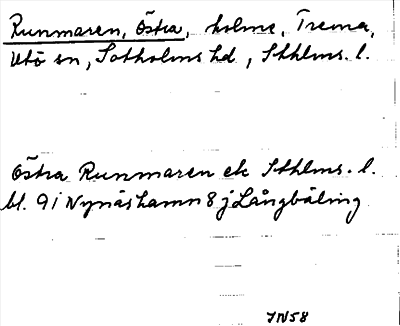 Runmaren, Östra, holme, Trema,
Utö sn, Sotholms hd, Sthlms. l.
Östra Runmaren ek Sthlms. l.
bl. 9 i Nynäshamn 8 j Långbäling
JN58